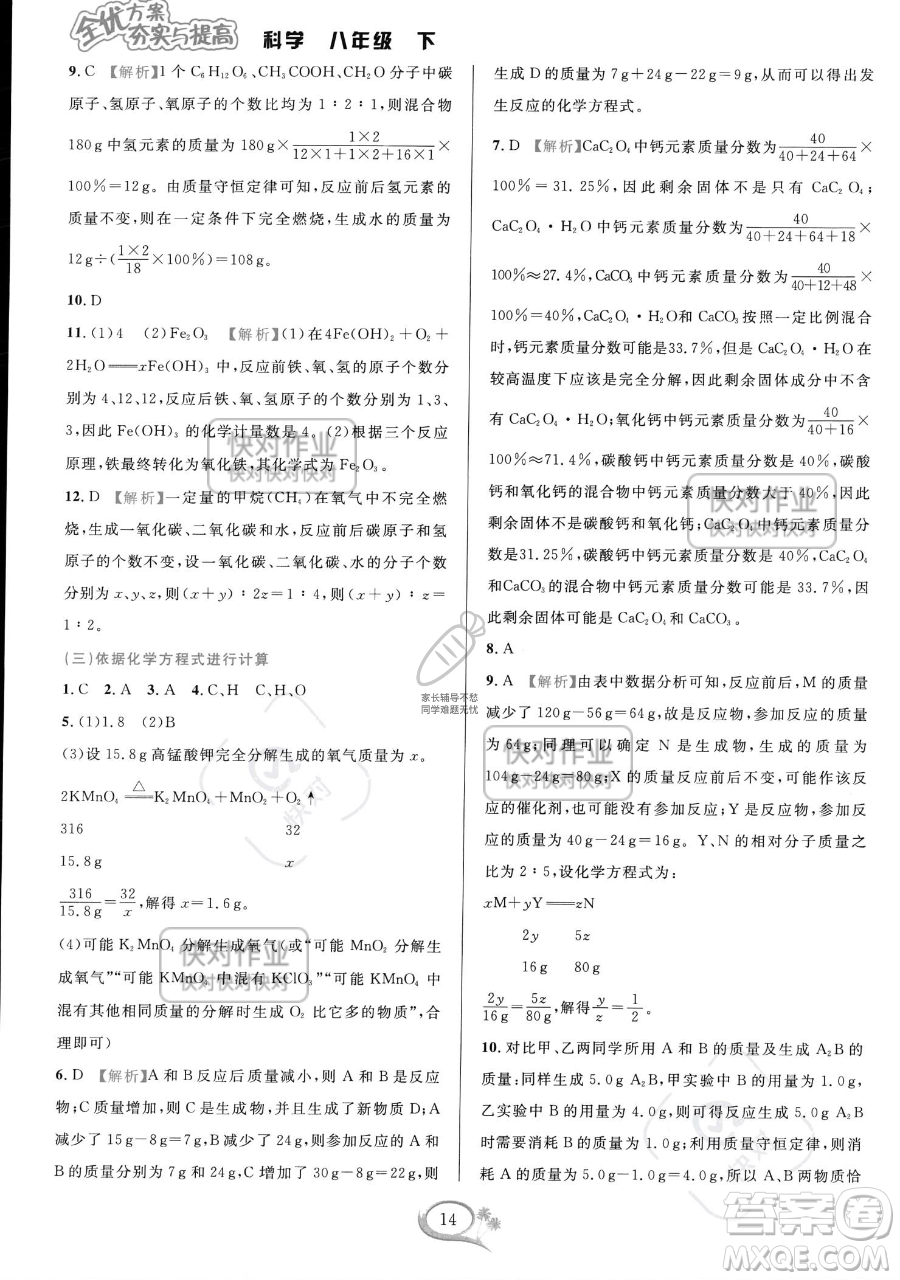 全优方案
夯实与提高
科学 八年级 下
9. C 【解析】1 个 C₆H₁₂O₆、CH₃COOH、CH₂O 分子中碳
原子、氢原子、氧原子的个数比均为 1∶2∶1，则混合物
180 g 中氢元素的质量为 180 g×(1×2)/(12×1+1×2+16×1)×
100％=12 g。由质量守恒定律可知，反应前后氢元素的
质量不变，则在一定条件下完全燃烧，生成水的质量为
12 g÷(1×2/18×100％)=108 g。
10. D
11. (1)4 (2)Fe₂O₃ 【解析】(1)在4Fe(OH)₂+O₂+
2H₂O══xFe(OH)₃ 中，反应前铁、氧、氢的原子个数分
别为 4、12、12，反应后铁、氧、氢的原子个数分别为 1、3、
3，因此 Fe(OH)₃ 的化学计量数是 4。(2)根据三个反应
原理，铁最终转化为氧化铁，其化学式为 Fe₂O₃。
12. D 【解析】一定量的甲烷(CH₄)在氧气中不完全燃
烧，生成一氧化碳、二氧化碳和水，反应前后碳原子和氢
原子的个数不变，设一氧化碳、二氧化碳、水的分子个数
分别为 x、y、z，则(x+y)∶2z=1∶4，所以(x+y)∶z=
1∶2。
(三)依据化学方程式进行计算
1. C 2. A 3. A 4. C、H C、H、O
5. (1)1.8 (2)B
(3)设 15.8 g 高锰酸钾完全分解生成的氧气质量为 x。
2KMnO₄ ══△ K₂MnO₄+MnO₂+O₂↑
316 32
15.8 g x
316/15.8 g=32/x，解得 x=1.6 g。
(4)可能 K₂MnO₄ 分解生成氧气(或“可能 MnO₂ 分解生
成氧气”“可能 KMnO₄ 中混有 KClO₃”“可能 KMnO₄ 中
混有其他相同质量的分解时生成 O₂ 比它多的物质”，合
理即可)
6. D 【解析】A 和 B 反应后质量减小，则 A 和 B 是反应
物；C 质量增加，可知生成物中一定有 C，可能有 D；A
减少了 15 g－8 g=7 g，B 减少了 24 g，所以参加反应的 A 和
B的质量分别为 7 g 和 24 g；C 增加了 30 g－8 g=22 g，则
生成 D 的质量为 7 g+24 g－22 g=9 g，从而可以得出发
生反应的化学方程式。
7. D 【解析】CaC₂O₄ 中钙元素质量分数为 40/(40+24+64)×
100％=31.25％，因此剩余固体不是只有 CaC₂O₄；
CaC₂O₄·H₂O 中钙元素质量分数为 40/(40+24+64+18)×
100％≈27.4％，CaCO₃ 中钙元素质量分数为 40/(40+12+48)×
100％=40％，CaC₂O₄·H₂O 和 CaCO₃ 按照一定比例混合
时，钙元素质量分数可能是33.7％，但是 CaC₂O₄·H₂O 在
较高温度下应该是完全分解，因此剩余固体成分中不含
有 CaC₂O₄·H₂O；氧化钙中钙元素质量分数为 40/(40+16)×
100％≈71.4％，碳酸钙中钙元素质量分数是 40％，碳酸
钙和氧化钙的混合物中钙元素质量分数大于 40％，因此
剩余固体不是碳酸钙和氧化钙；CaC₂O₄ 中钙元素质量分
数是31.25％，碳酸钙中钙元素质量分数是 40％，CaC₂O₄
和CaCO₃ 的混合物中钙元素质量分数可能是 33.7％，因
此剩余固体可能是 CaC₂O₄ 和 CaCO₃。
8. A
9. A 【解析】由表中数据分析可知，反应前后，M 的质量
减少了 120 g－56 g=64 g，故是反应物，参加反应的质量
为 64 g；同理可以确定 N 是生成物，生成的质量为
104 g－24 g=80 g；X 的质量不变，可能作该反应
的催化剂，也可能没有参加反应；Y 是反应物，参加反
应的质量为 40 g－24 g=16 g。Y、N 的相对分子质量之
比为 2∶5，设化学方程式为：
xM+yY══zN
2y 5z
16 g 80 g
2y/16 g=5z/80 g，解得 y/z=1/2。
10. 对比甲、乙两同学所用 A 和 B 的质量及生成 A₂B 的
质量：同样生成 5.0 g A₂B，甲实验中 B 的质量为 1.0 g，
乙实验中 B 的质量为 2.0 g，可知每生成 5.0 g A₂B
时需要消耗 B 的质量为 1.0 g；利用质量守恒定律，则消
耗 A 的质量为 5.0 g－1.0 g=4.0 g，所以 A、B 两物质恰
快对作业
快对快对快对
快对作业
快对快对快对
快对作业
快对快对快对
快对作业
快对快对快对
快对
快对
家长辅导不愁
同学难题无忧
14
答案卷
MXQE.COM